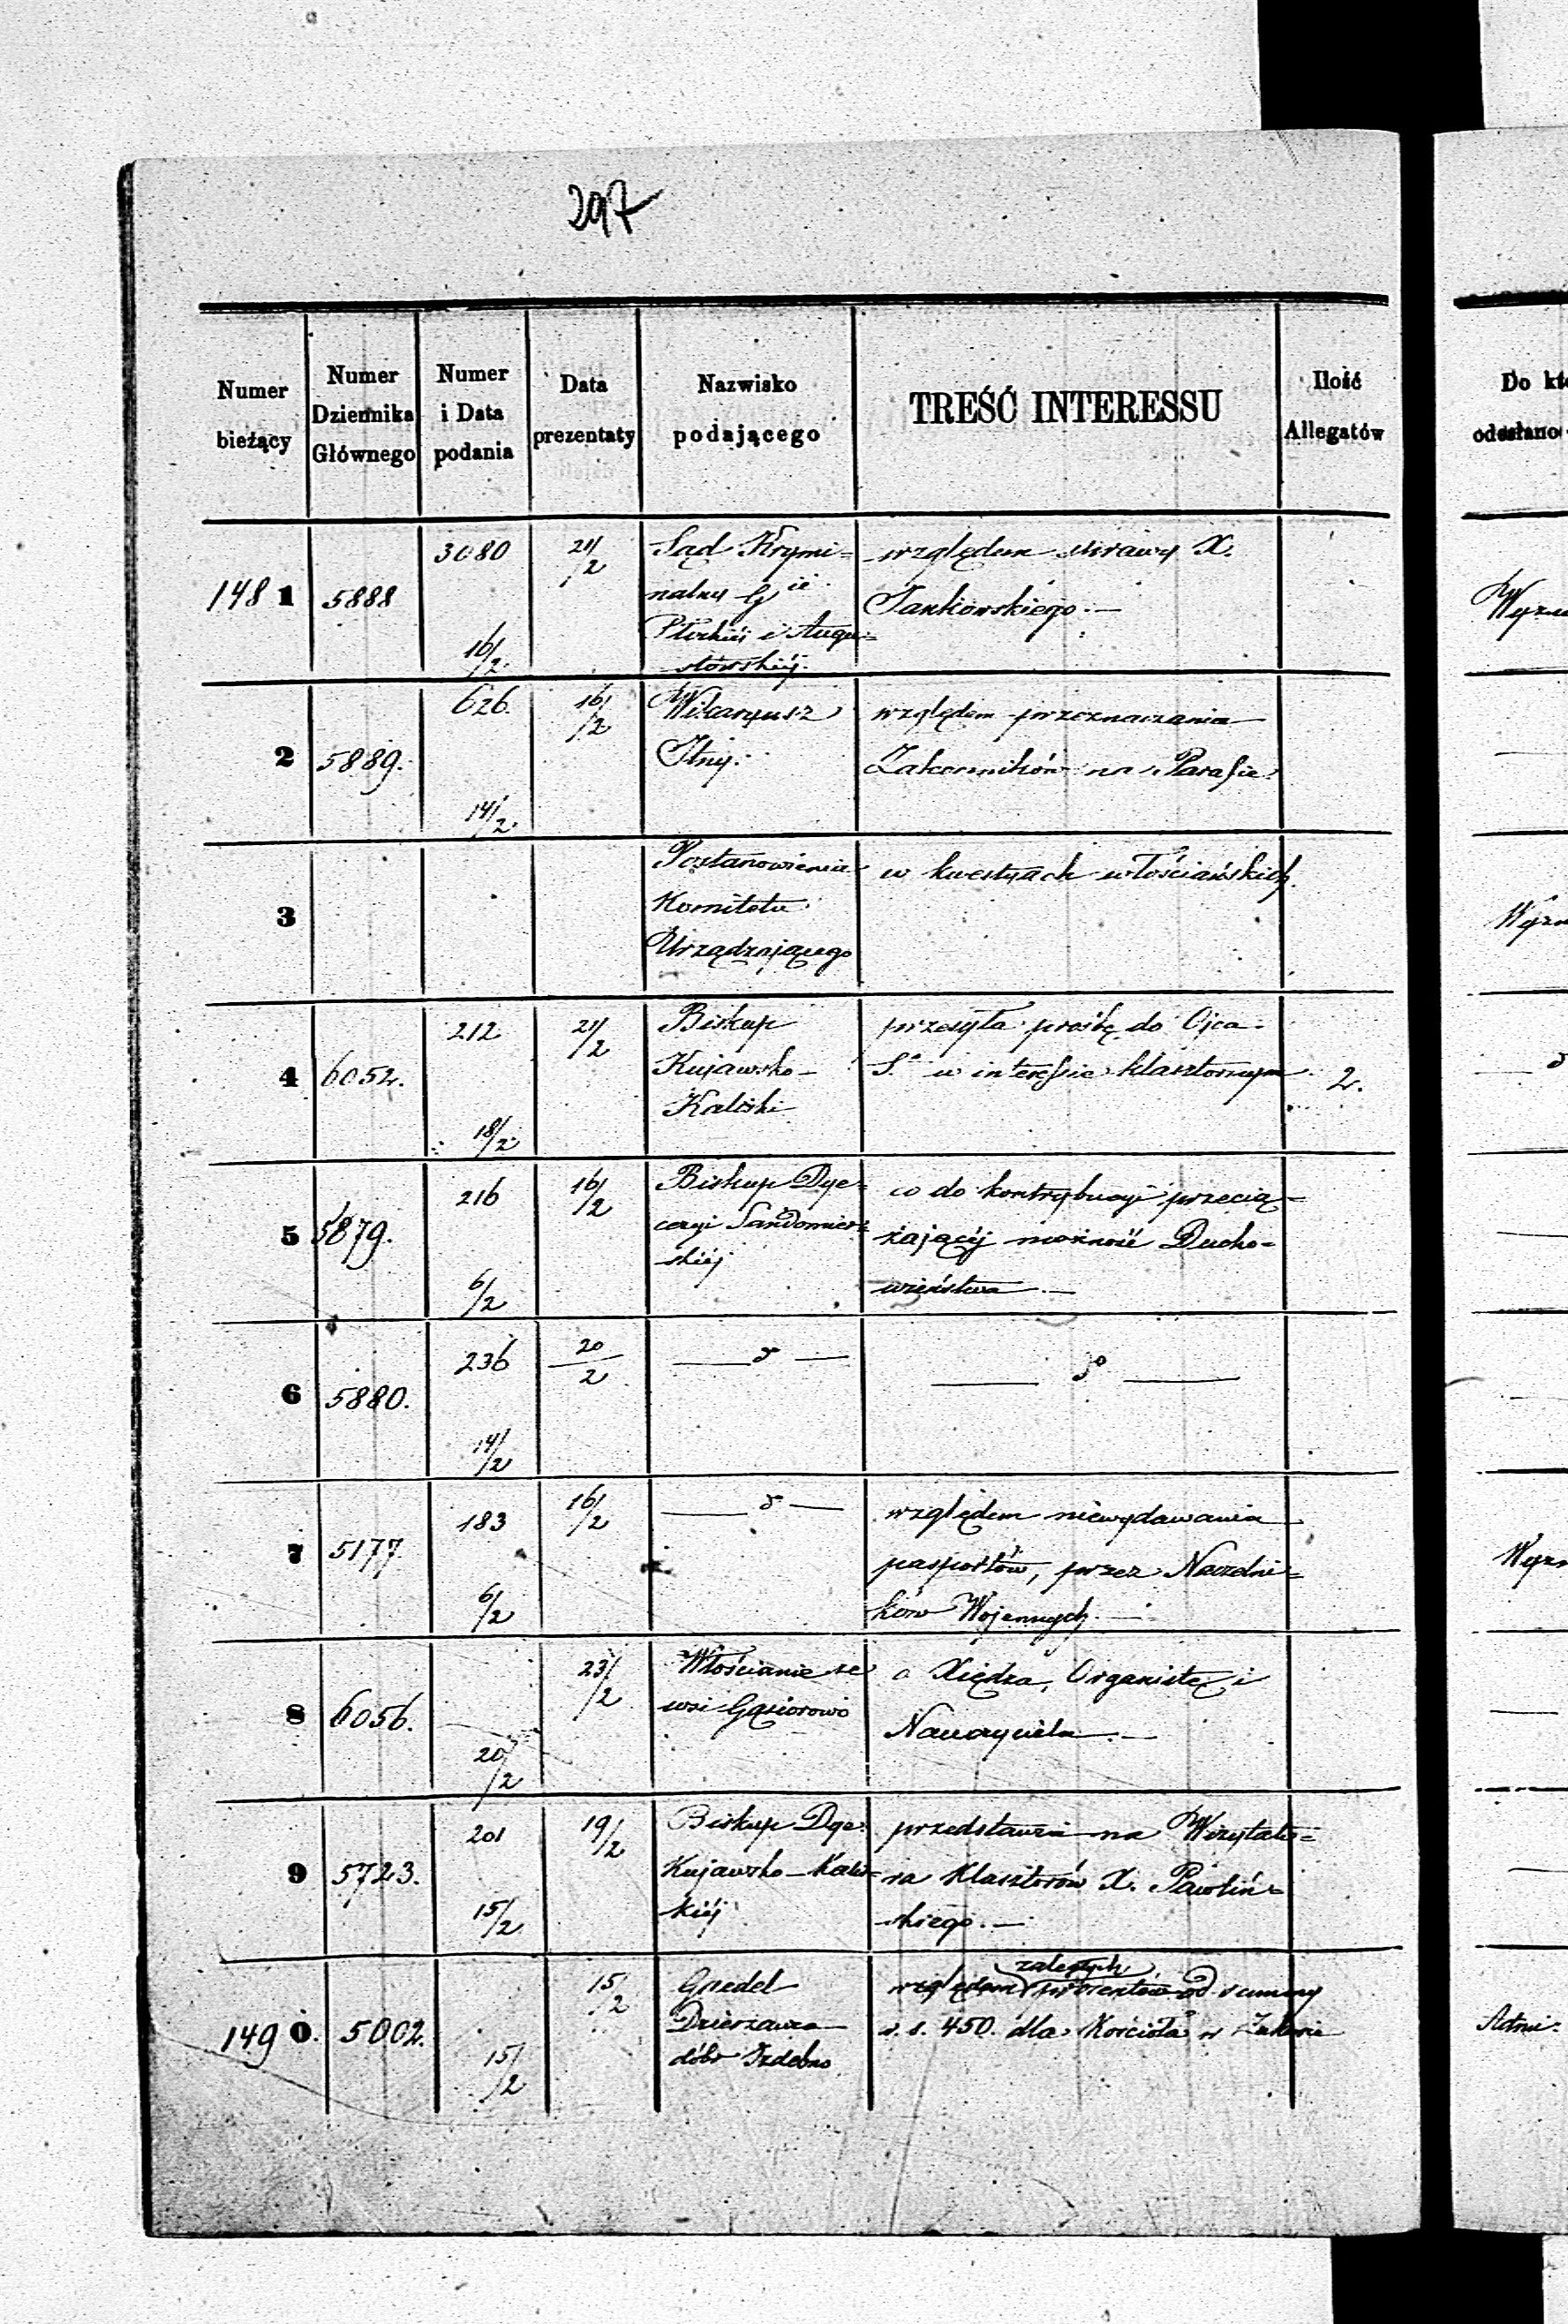 297
Numer bieżący
Numer Dziennika Głównego
Numer i Data podania
Data prezentaty
Nazwisko podającego
TREŚĆ INTERESSU
Ilość Allegatów
Do kt
odesłano
148 1
5888
3080
16/2
21/2
Sąd Krymi=
nalny G
Płockiéj i Augu=
stowskiéj.
względem sprawy X.
Jankowskiego.—
2
5889.
626.
14/2
16/2
Wikaryusz
względem przeznaczania
Zakonników na Parafie.
3
Postanowienia
Komitetu
Urządzającego
w kwestyach włościańskich.
4
6052.
212
18/2
21/2
Biskup
Kujawsko-
Kaliski
przesyła prośbę do Ojca
Sº w interessie klasztornym
2.
5
5879.
216
6/2
16/2
Biskup Dye=
cezyi Sandomier=
skiéj
co do kontrybucyi przecią=
żającéj możność Ducho=
wieństwa.—
6
5880.
236
14/2
20/2
— dº —
— dº —
7
5177
183
6/2
16/2
— dº —
względem niewydawania
pasportów, przez Naczelni=
ków Wojennych.—
8
6056.
20/2
23/2
Włościanie ze
wsi Gąsiorowo
o Xiędza, Organistę i
Nauczyciela.—
9
5723.
201
15/2
19/2
Biskup Dye.
Kujawsko-Kalis=
kiéj
przedstawia na Wizytato=
ra Klasztorów X. Pawliń=
skiego.—
149 0.
5002.
15/2
15/2
Dzierżawca
dóbr Izdebno
zaległych
względem procentów od summy
r. s. 450. dla Kościoła w